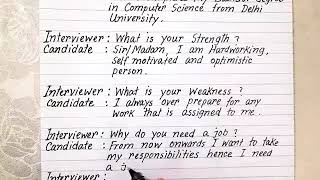 in Computer Science from Delhi
University.
Interviewer : What is your Strength ?
Candidate : Sir/Madam, I am Hardworking,
self motivated and optimistic
person.
Interviewer : What is your Weakness ?
Candidate : I always over prepare for any
work that is assigned to me.
Interviewer : Why do you need a job ?
Candidate : From now onwards I want to take
my responsibilities hence I need
a
Interviewer :